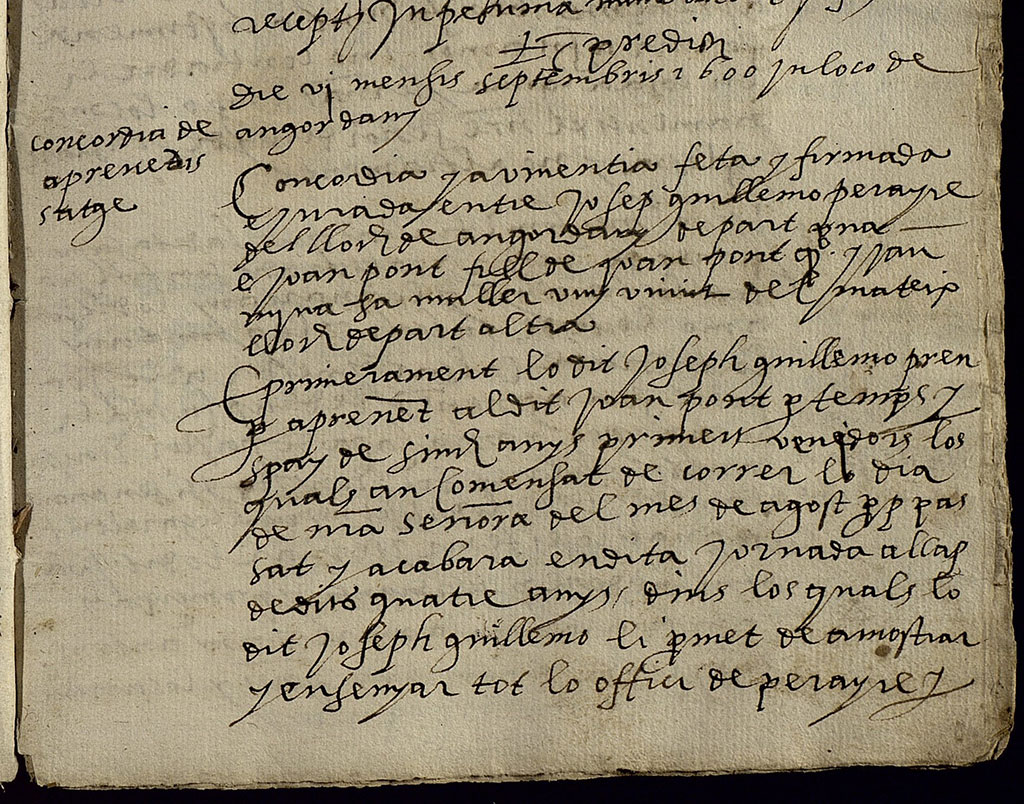 die vi mensis septembris 1600 in loco de
angordany
concordia de
aprenedis
satge
Concordia y avinentia feta y firmada
e jurada entre Josep guillemo perayre
del lloch de angordany de part una
e Joan pont fill de Joan pont qº. y Jau
muller vuy vivint del mateix
lloch de part altra
E primerament lo dit Joseph guillemo pren
p aprenent al dit Joan pont p temps y
spay de sinch anys primers venidors los
quals an comensat de correr lo dia
de nra senora del mes de agost pp pas
sat y acabara en dita jornada al cap
de dits quatre anys, dins los quals lo
dit Joseph guillemo li pmet de amostrar
y ensenyar tot lo offici de perayre y